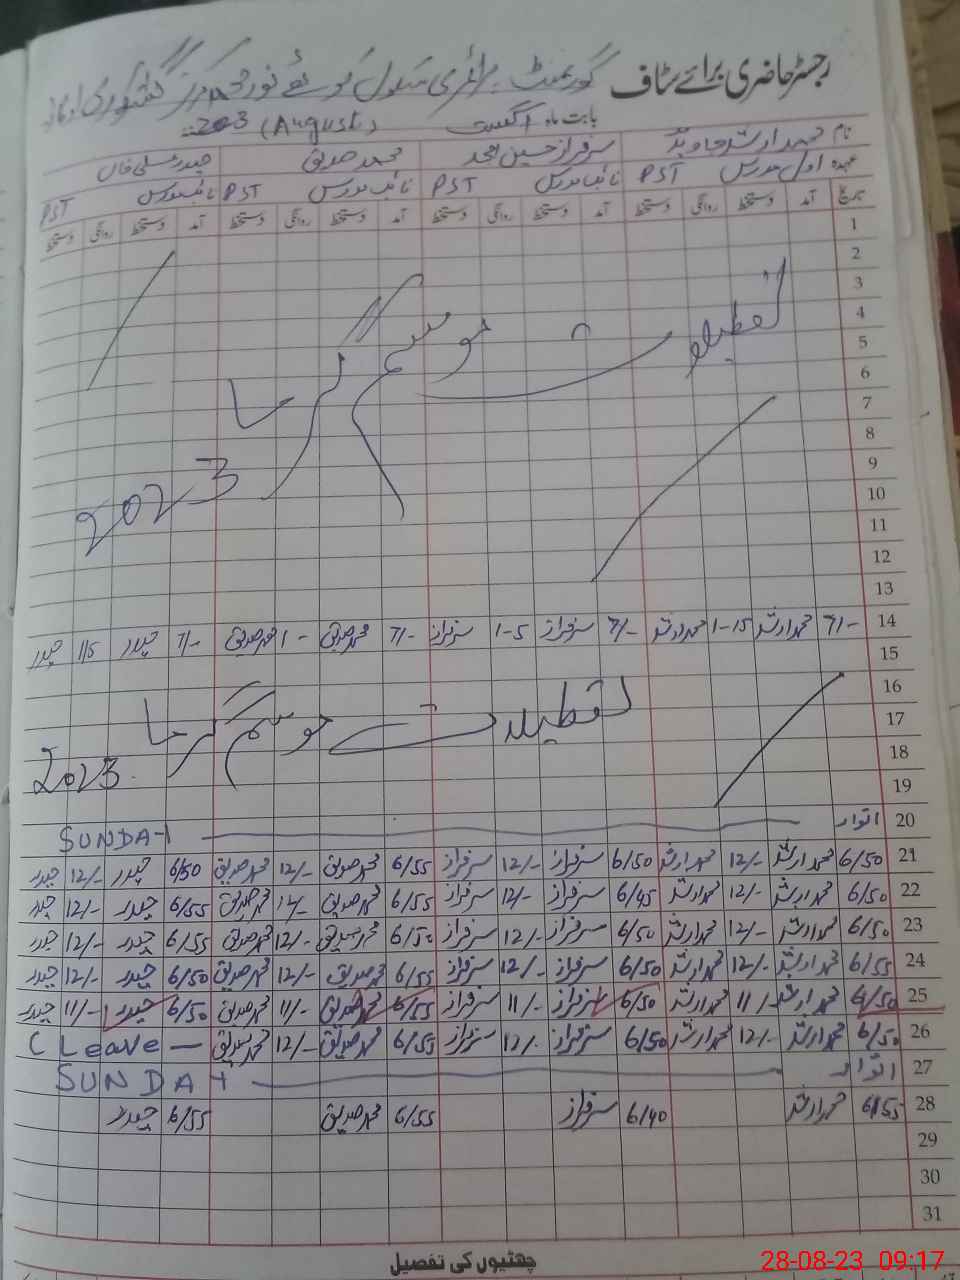 رجسٹر حاضری برائے سٹاف گورنمنٹ پرائمری سکول
بابت ماہ اگست (August) 203
نام محمد ارشد جاوید سرفراز حسین امجد محمد صدیق حیدر علی خان
عہدہ اول مدرس PST نائب مدرس PST نائب مدرس PST نائب مدرس PST
تاریخ آمد دستخط روانگی دستخط آمد دستخط روانگی دستخط آمد دستخط روانگی دستخط آمد دستخط روانگی دستخط
1
2
3
4
تعطیلات موسم گرما
5
6
7
8
9
2023
10
11
12
13
14 7/- محمد ارشد 1-15 محمد ارشد 7/- سرفراز 1-5 سرفراز 7/- محمد صدیق 1- محمد صدیق 7/- حیدر 1/5 حیدر
15
16
تعطیلات موسم گرما
17
18
2023
19
20 اتوار SUNDAY
21 6/50 محمد ارشد 12/- محمد ارشد 6/50 سرفراز 12/- سرفراز 6/55 محمد صدیق 12/- محمد صدیق 6/50 حیدر 12/- حیدر
22 6/50 محمد ارشد 12/- محمد ارشد 6/45 سرفراز 12/- سرفراز 6/55 محمد صدیق 12/- محمد صدیق 6/55 حیدر 12/- حیدر
23 6/50 محمد ارشد 12/- محمد ارشد 6/50 سرفراز 12/- سرفراز 6/50 محمد صدیق 12/- محمد صدیق 6/55 حیدر 12/- حیدر
24 6/55 محمد ارشد 12/- محمد ارشد 6/50 سرفراز 12/- سرفراز 6/55 محمد صدیق 12/- محمد صدیق 6/50 حیدر 12/- حیدر
25 6/50 محمد ارشد 11/- محمد ارشد 6/50 سرفراز 11/- سرفراز 6/55 محمد صدیق 11/- محمد صدیق 6/50 حیدر 11/- حیدر
26 6/50 محمد ارشد 12/- محمد ارشد 6/50 سرفراز 12/- سرفراز 6/55 محمد صدیق 12/- محمد صدیق C Leave
27 اتوار SUNDAY
28 6/55 محمد ارشد 6/40 سرفراز 6/55 محمد صدیق 6/55 حیدر
29
30
31
چھٹیوں کی تفصیل
28-08-23 09:17